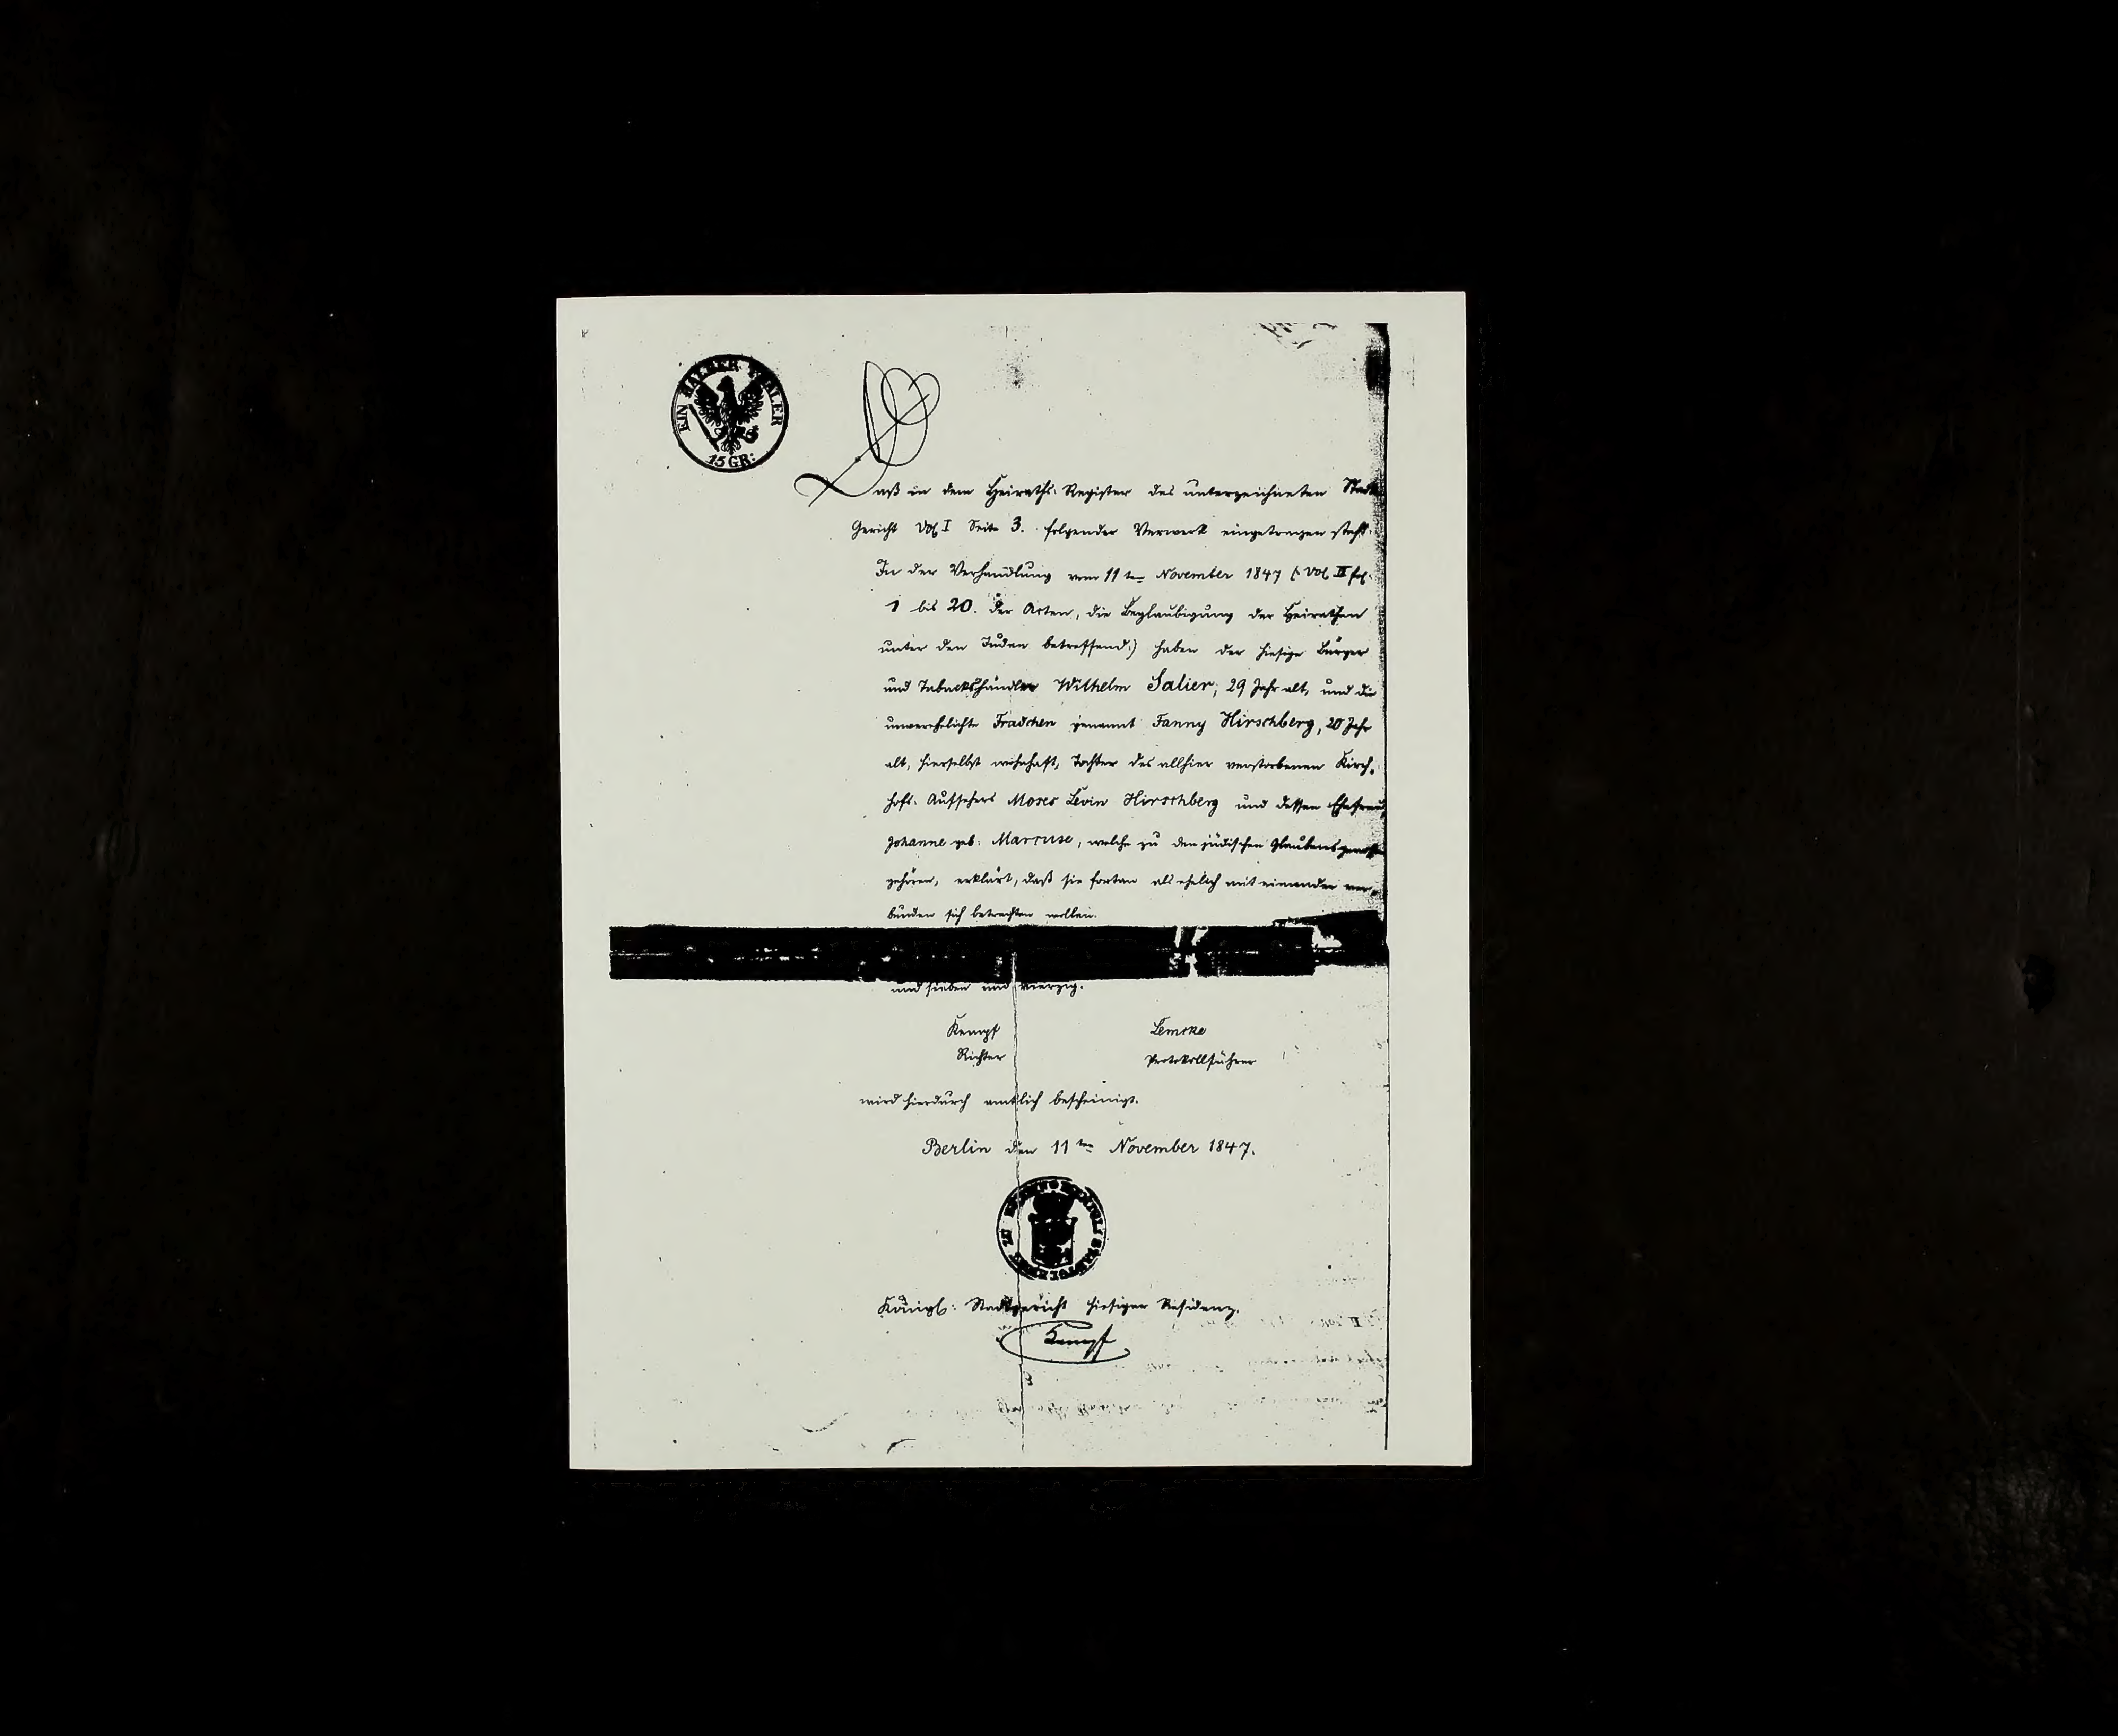 EIN HALBER THALER
15 GR:
Daß in dem Heiraths-Register des unterzeichneten Stadt
Gericht Vol I Seite 3. folgender Vermerk eingetragen steht:
In der Verhandlung vom 11ten November 1847 (: Vol II fol:
1 bis 20. der Acten, die Beglaubigung der Heirathen
unter den Juden betreffend:) haben der hiesige Bürger
und Tabackshändler Wilhelm Salier, 29 Jahr alt, und die
unverehelichte Fradchen genannt Fanny Hirschberg, 20 Jahr
alt, hierselbst wohnhaft, Tochter des allhier verstorbenen Kirch-
hofs-Aufsehers Moses Levin Hirschberg und dessen Ehefrau,
Johanne geb. Marcuse, welche zu den jüdischen Glaubensgenossen
gehören, erklärt, daß sie fortan als ehelich mit einander ver-
bunden sich betrachten wollen.
und sieben und vierzig.
Kempf Lemcke
Richter Protokollführer
wird hierdurch amtlich bescheinigt.
Berlin den 11ten November 1847.
Königl: Stadtgericht hiesiger Residenz.
Kempf